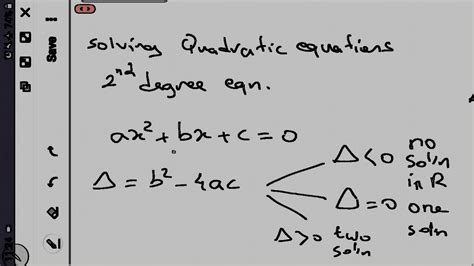 Save
solving Quadratic equations
2nd degree eqn.
ax² + bx + c = 0
Δ = b² - 4ac
Δ < 0 no soln in R
Δ = 0 one soln
Δ > 0 two soln